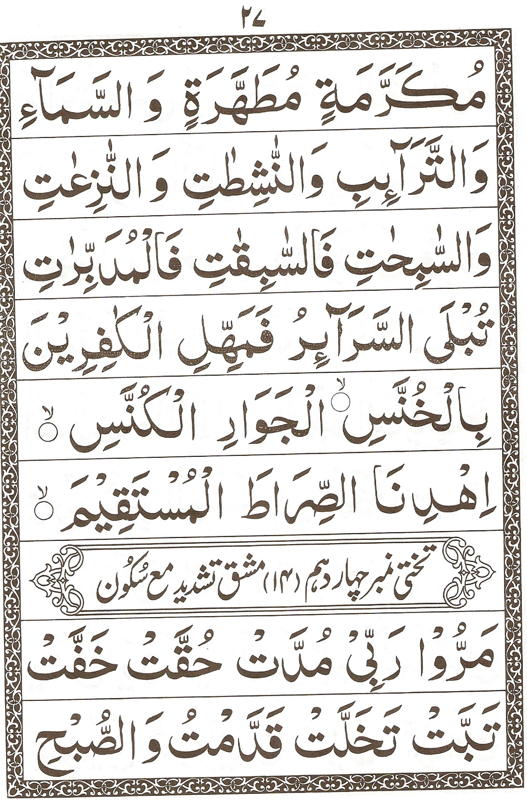 ٢٧
مُكَرَّمَةٍ مُطَهَّرَةٍ وَ السَّمَآءِ
وَالتَّرَآئِبِ وَالنّٰشِطٰتِ وَ النّٰزِعٰتِ
وَالسّٰبِحٰتِ فَالسّٰبِقٰتِ فَالْمُدَبِّرٰتِ
تُبْلَى السَّرَآئِرُ فَمَهِّلِ الْكٰفِرِيْنَ
بِالْخُنَّسِ ۙ الْجَوَارِ الْكُنَّسِ ۙ
اِهْدِنَا الصِّرَاطَ الْمُسْتَقِيْمَ ۙ
تختی نمبر چہار دہم (۱۴) مشق تشدید مع سُکون
مَرُّوْا رَبِّيْ مُدَّتْ حُقَّتْ خَفَّتْ
تَبَّتْ تَخَلَّتْ قَدَّمْتُ وَالصُّبْحِ